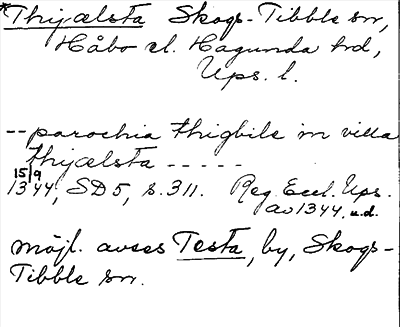 *Thijælsta Skogs-Tibble sn,
Håbo el. Hagunda hd,
Ups. l.
-- parochia thigbile in villa
thijælsta - - - - -
15/9 1344, SD5, s. 311. Reg. Eccl. Ups.
av 1344, u.d.
möjl. avses Testa, by, Skogs-
Tibble sn.